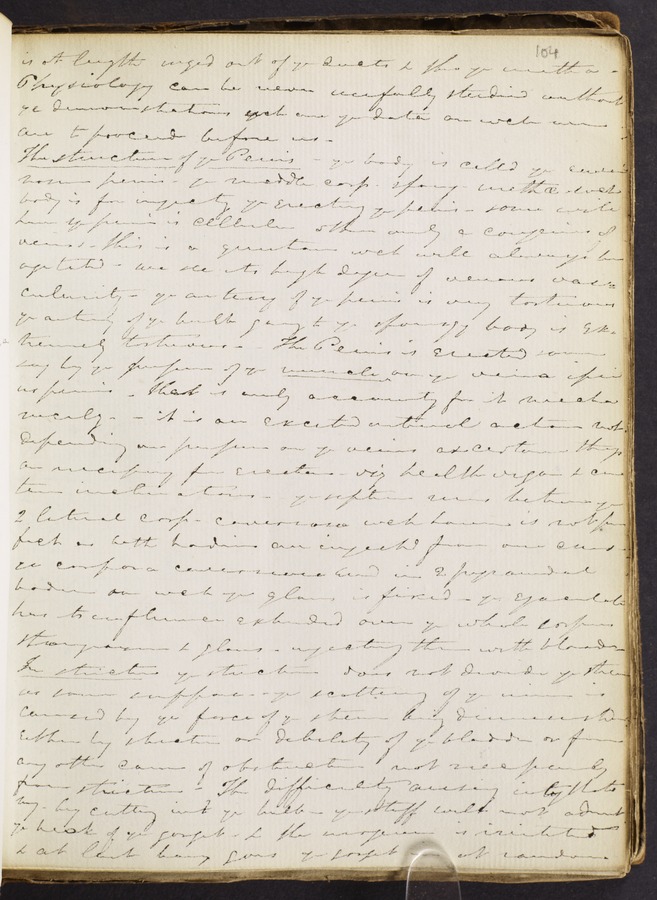 104
is at length urged out of ye ducts & thro ye urethra -
Physiology can be never usefully studied without
ye demonstrations wch are ye data on wch we
are to proceed before us -
The structure of ye Penis - ye body is calld ye
penis - ye middle corp. spong. urethræ
body is for injectg ye erecting ye penis - some
ye penis is cellular others only a congeries of
veins - this is a question wch will always be
agitatd - we see its high degree of venous vas-
cularity - ye artery of ye penis is very tortuous
ye artery of ye bulb going to ye spongy body is ex-
tremely tortuous - The Penis is erected some
say by ye pressure of ye muscles on ye vena
penis - that is only accountg for it mecha
nically - it is an excited arterial action not
depending on pressure on ye veins 3 certain things
are necessary for erection - viz health vigor &
inclination - ye septum runs between ye
2 lateral corp - cavernosa wch however is not per
fect as both bodies are injected from one
ye corpora cavernosa end in 2 pyramidal
bodies on wch ye glans is fixed - ye
has its influence extended over ye whole corpus
spongiosum & glans - injecting them with blood -
In stricture ye stricture does not divide ye stream
as some suppose - ye scattering of ye urine is
caused by ye force of ye stream being diminished
either by stricture or debility of ye bladder or from
any other cause of obstruction not necessarily
from stricture - The difficulty arising in
by cutting into ye bulb - ye staff will not admit
ye beak of ye gorget - & the surgeon is irritated
& at last bang goes ye gorget at random